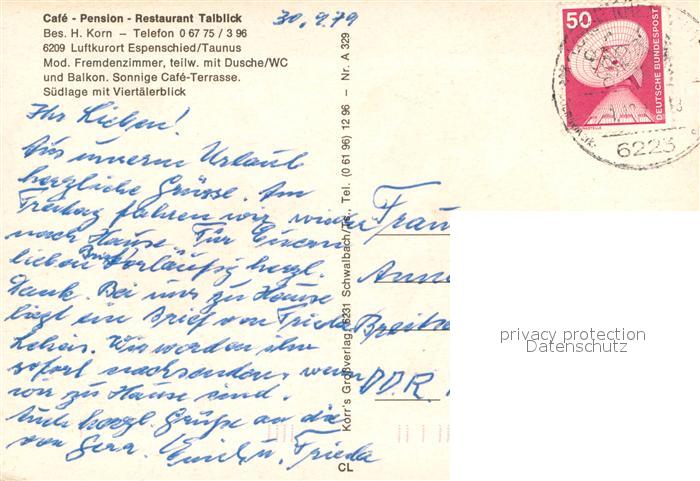 Café - Pension - Restaurant Talblick
Bes. H. Korn – Telefon 0 67 75 / 3 96
6209 Luftkurort Espenschied/Taunus
Mod. Fremdenzimmer, teilw. mit Dusche/WC
und Balkon. Sonnige Café-Terrasse.
Südlage mit Viertälerblick
30.9.79
Ihr Lieben!
Aus unserm Urlaub
herzliche Grüsse. Am
Freitag fahren wir wieder
nach Hause. Für Euern
lieben Brief vorläufig herzl.
Dank. Bei uns zu Hause
liegt ein Brief von Frieda
Wir werden ihn
sofort nachsenden, wenn
wir zu Hause sind.
Auch herzl. Grüße an die
von Gera. Emil u. Frieda
Korr's Großverlag, 6231 Schwalbach/Ts., Tel. (0 61 96) 12 96 – Nr. A 329
CL
50
DEUTSCHE BUNDESPOST
6223
Frau
DDR
privacy protection
Datenschutz